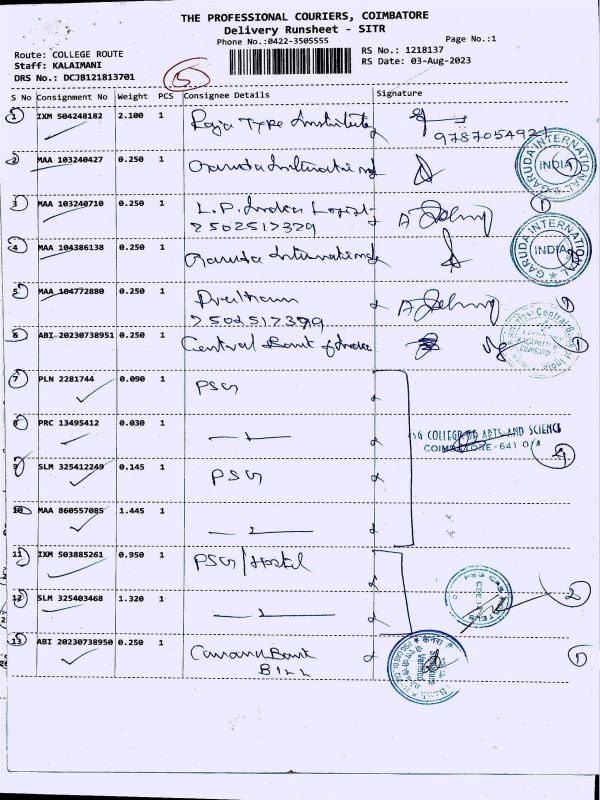 THE PROFESSIONAL COURIERS, COIMBATORE
Delivery Runsheet - SITR
Phone No.:0422-3505555
Page No.:1
Route: COLLEGE ROUTE
RS No.: 1218137
Staff: KALAIMANI
RS Date: 03-Aug-2023
DRS No.: DCJB121813701
15
S No Consignment No Weight PCS Consignee Details Signature
1 IXM 504248182 2.100 1 Raja Type Institute
2 MAA 103240427 0.250 1 Garuda International
GARUDA INTERNATIONAL
INDIA
3 MAA 103240710 0.250 1 L.P. India Logist
7502517379
4 MAA 104386138 0.250 1 Garuda International
GARUDA INTERNATIONAL
INDIA
5 MAA 104772880 0.250 1
6 ABI 20230738951 0.250 1 Central Bank of India
7 PLN 2281744 0.090 1 PSG
8 PRC 13495412 0.030 1
COLLEGE OF ARTS AND SCIENCE
COIMBATORE-641 014
4
9 SLM 325412249 0.145 1 PSG
10 MAA 860557085 1.445 1
11 IXM 503885261 0.950 1 PSG/Hostel
12 SLM 325403468 1.320 1
2
13 ABI 20230738950 0.250 1 Canara Bank